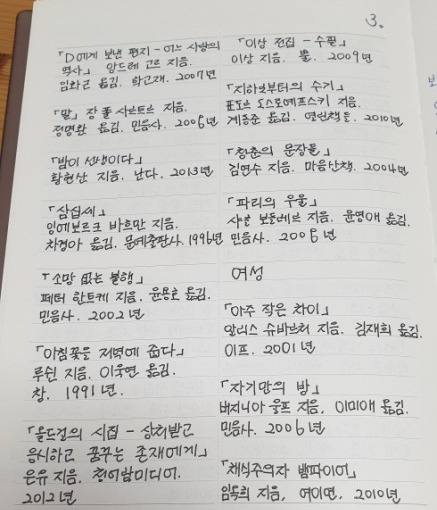 3.
「D에게 보낸 편지 - 어느 사랑의
역사」 앙드레 고르 지음.
임희근 옮김, 학고재, 2007년
「말」 장 폴 사르트르 지음.
정명환 옮김. 민음사. 2006년
「밤이 선생이다」
황현산 지음. 난다. 2013년
「삼십세」
잉에보르크 바흐만 지음.
차경아 옮김. 문예출판사. 1996년
「소망 없는 불행」
페터 한트케 지음. 윤용호 옮김.
민음사. 2002년
「아침꽃을 저녁에 줍다」
루쉰 지음. 이욱연 옮김.
창. 1991년.
「올드걸의 시집 - 상처받고
응시하고 꿈꾸는 존재에게」
은유 지음. 청어람미디어.
2012년
「이상 전집 - 수필」
이상 지음. 뿔. 2009년
「지하로부터의 수기」
표도르 도스토예프스키 지음.
계동준 옮김. 열린책들. 2010년
「청춘의 문장들」
김연수 지음. 마음산책. 2004년
「파리의 우울」
샤를 보들레르 지음. 윤영애 옮김.
민음사. 2008년
여성
「아주 작은 차이」
알리스 슈바르처 지음. 김재희 옮김.
이프. 2001년
「자기만의 방」
버지니아 울프 지음. 이미애 옮김.
민음사. 2006년
「채식주의자 뱀파이어」
임옥희 지음, 여이연, 2010년